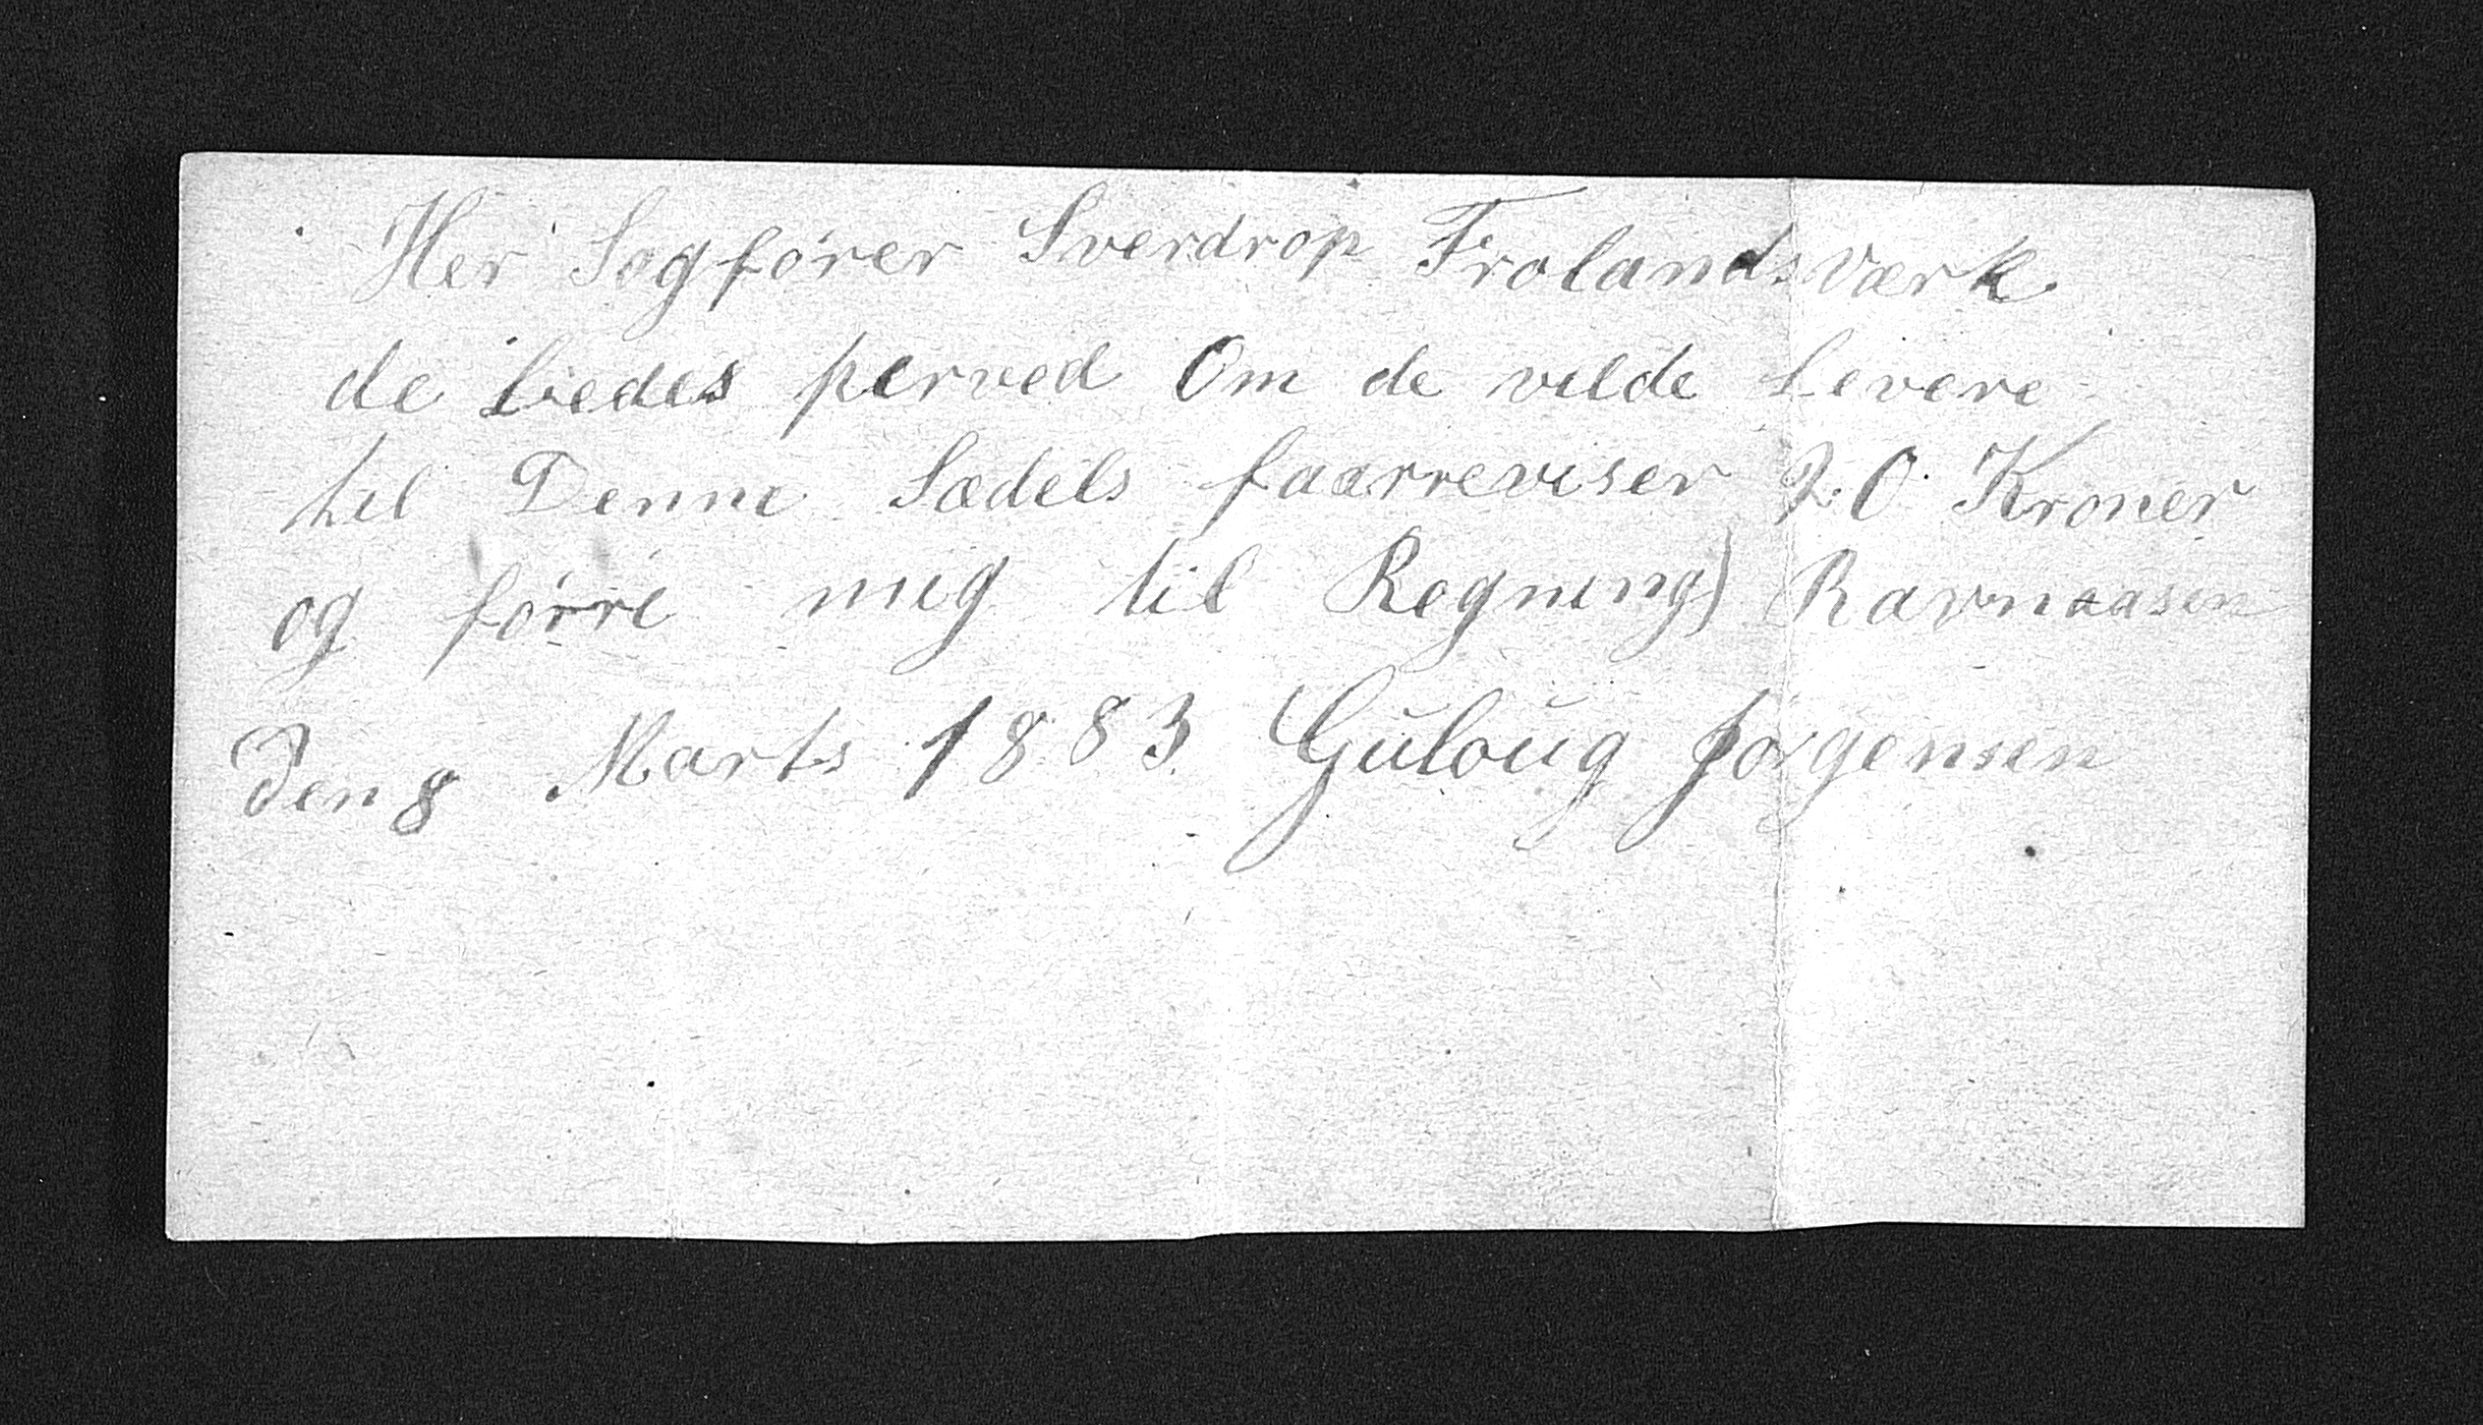 Her Sagfører Sverdrop Frolandsværk
de biedes perved Om de vilde Levere
til Denne Sædels faarreviser 20 Kroner
og førre mig til Regning) Ravnaasen
Den 8 Marts 1883 Guloug Jorgensen